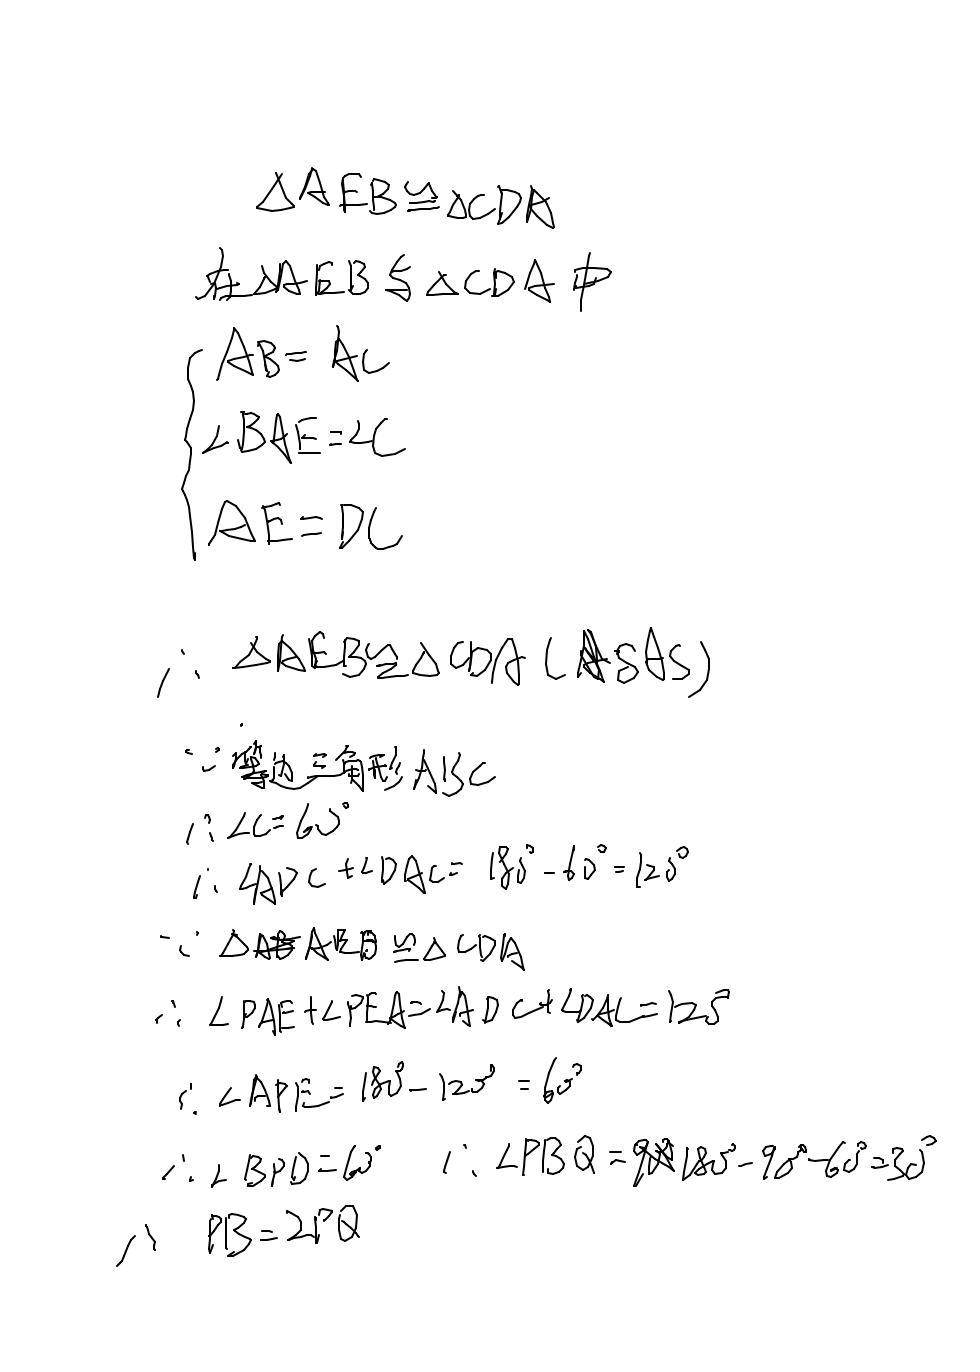 △AEB≌△CDA
在△AEB与△CDA中
AB=AC
∠BAE=∠C
AE=DC
∴ △AEB≌△CDA (SAS)
∵ 等边三角形ABC
∴ ∠C=60°
∴ ∠ADC+∠DAC= 180°-60°=120°
∵ △AEB≌△CDA
∴ ∠PAE+∠PEA=∠ADC+∠DAC=120°
∴ ∠APE=180°-120°=60°
∴ ∠BPD=60° ∴ ∠PBQ=180°-90°-60°=30°
∴ PB=2PQ